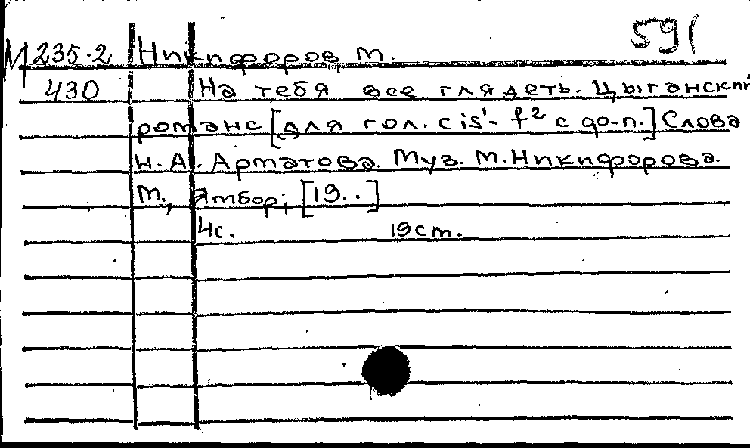 591
М 235-2 Никифоров, М.
430 На тебя все глядеть. Цыганский
романс [для гол. cis¹- f² с фо-п.] Слова
Н. А. Арматова. Муз. М. Никифорова.
М., Ямбор, [19..]
4с. 19cm.